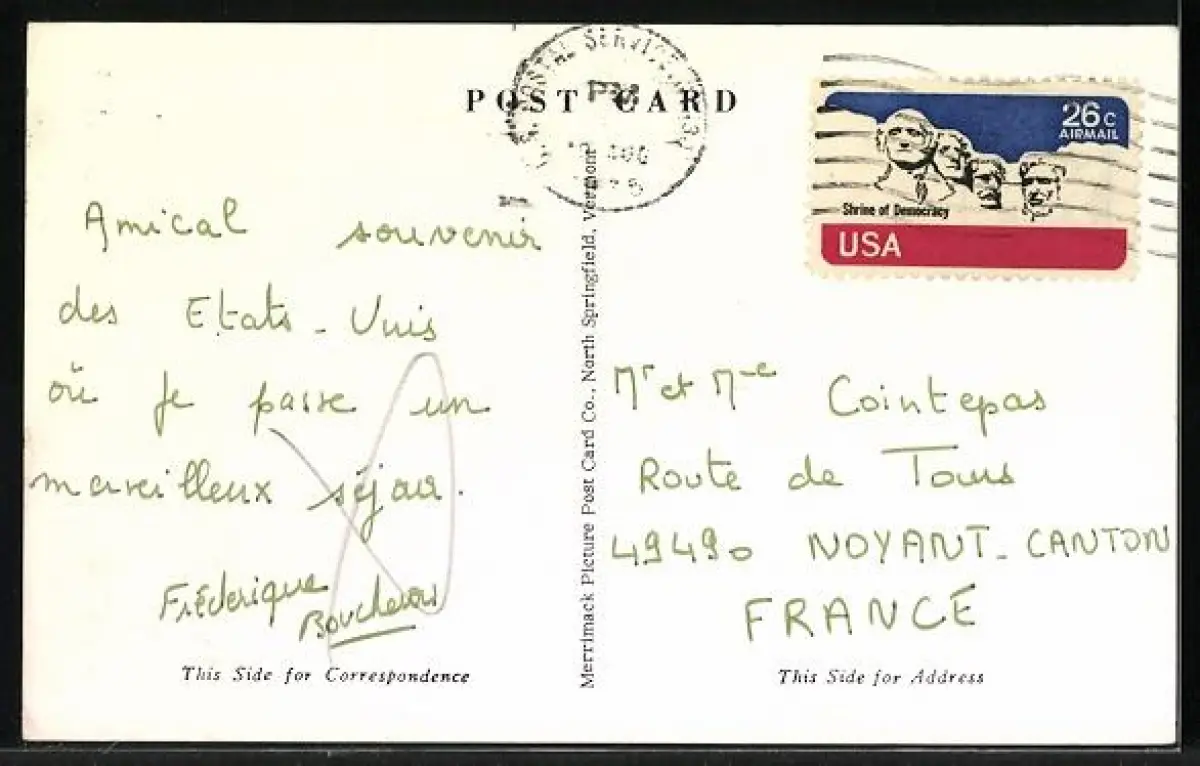 POST CARD
POSTAL SERVICE
PM
AUG
26c
AIRMAIL
Shrine of Democracy
USA
Amical souvenir
des Etats-Unis
où je passe un
merveilleux séjour.
Frédérique
This Side for Correspondence
Merrimack Picture Post Card Co., North Springfield, Vermont
Mr et Mme Cointepas
Route de Tours
49490 NOYANT-CANTON
FRANCE
This Side for Address